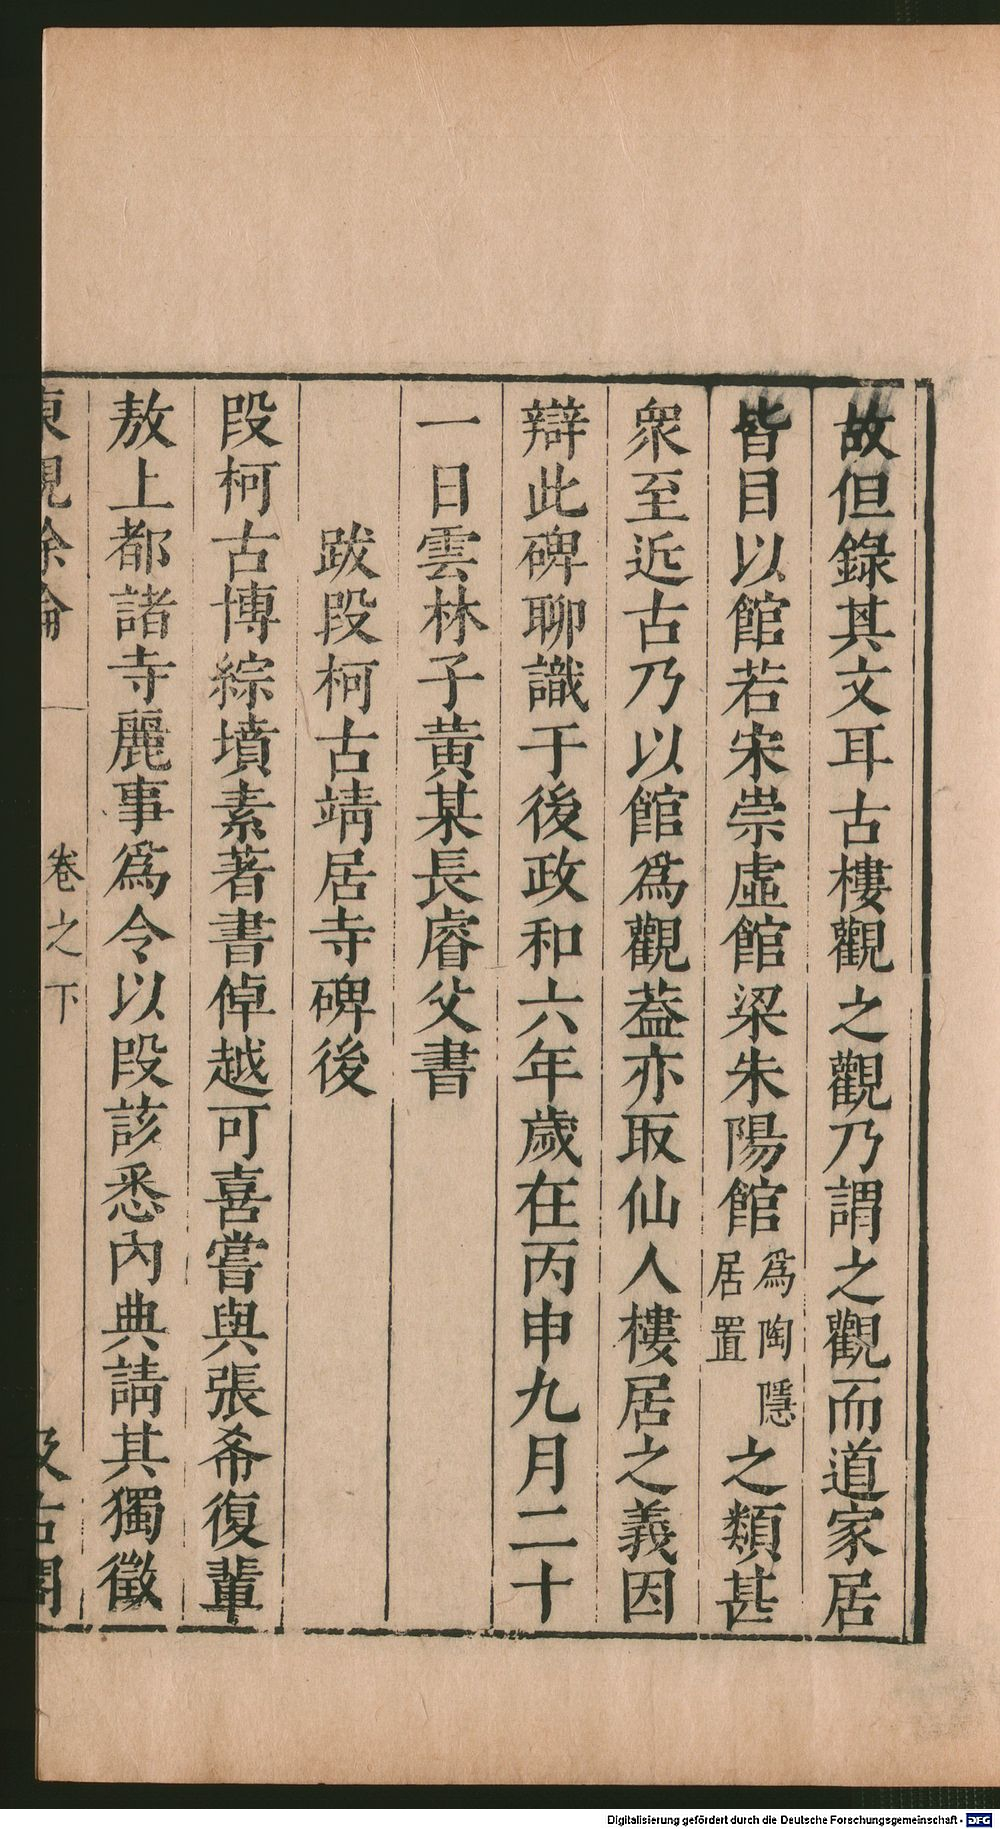 故但錄其文耳古樓觀之觀乃謂之觀而道家居
皆目以館若宋崇虛館梁朱陽館爲陶隱居置之類甚
衆至近古乃以館爲觀葢亦取仙人樓居之義因
辯此碑聊識于後政和六年歲在丙申九月二十
一日雲林子黃某長睿父書
跋段柯古靖居寺碑後
段柯古博綜墳素著書倬越可喜嘗與張希復輩
敖上都諸寺麗事爲令以段該悉內典請其獨徵
東觀餘論
卷之下
汲古閣
Digitalisierung gefördert durch die Deutsche Forschungsgemeinschaft - DFG